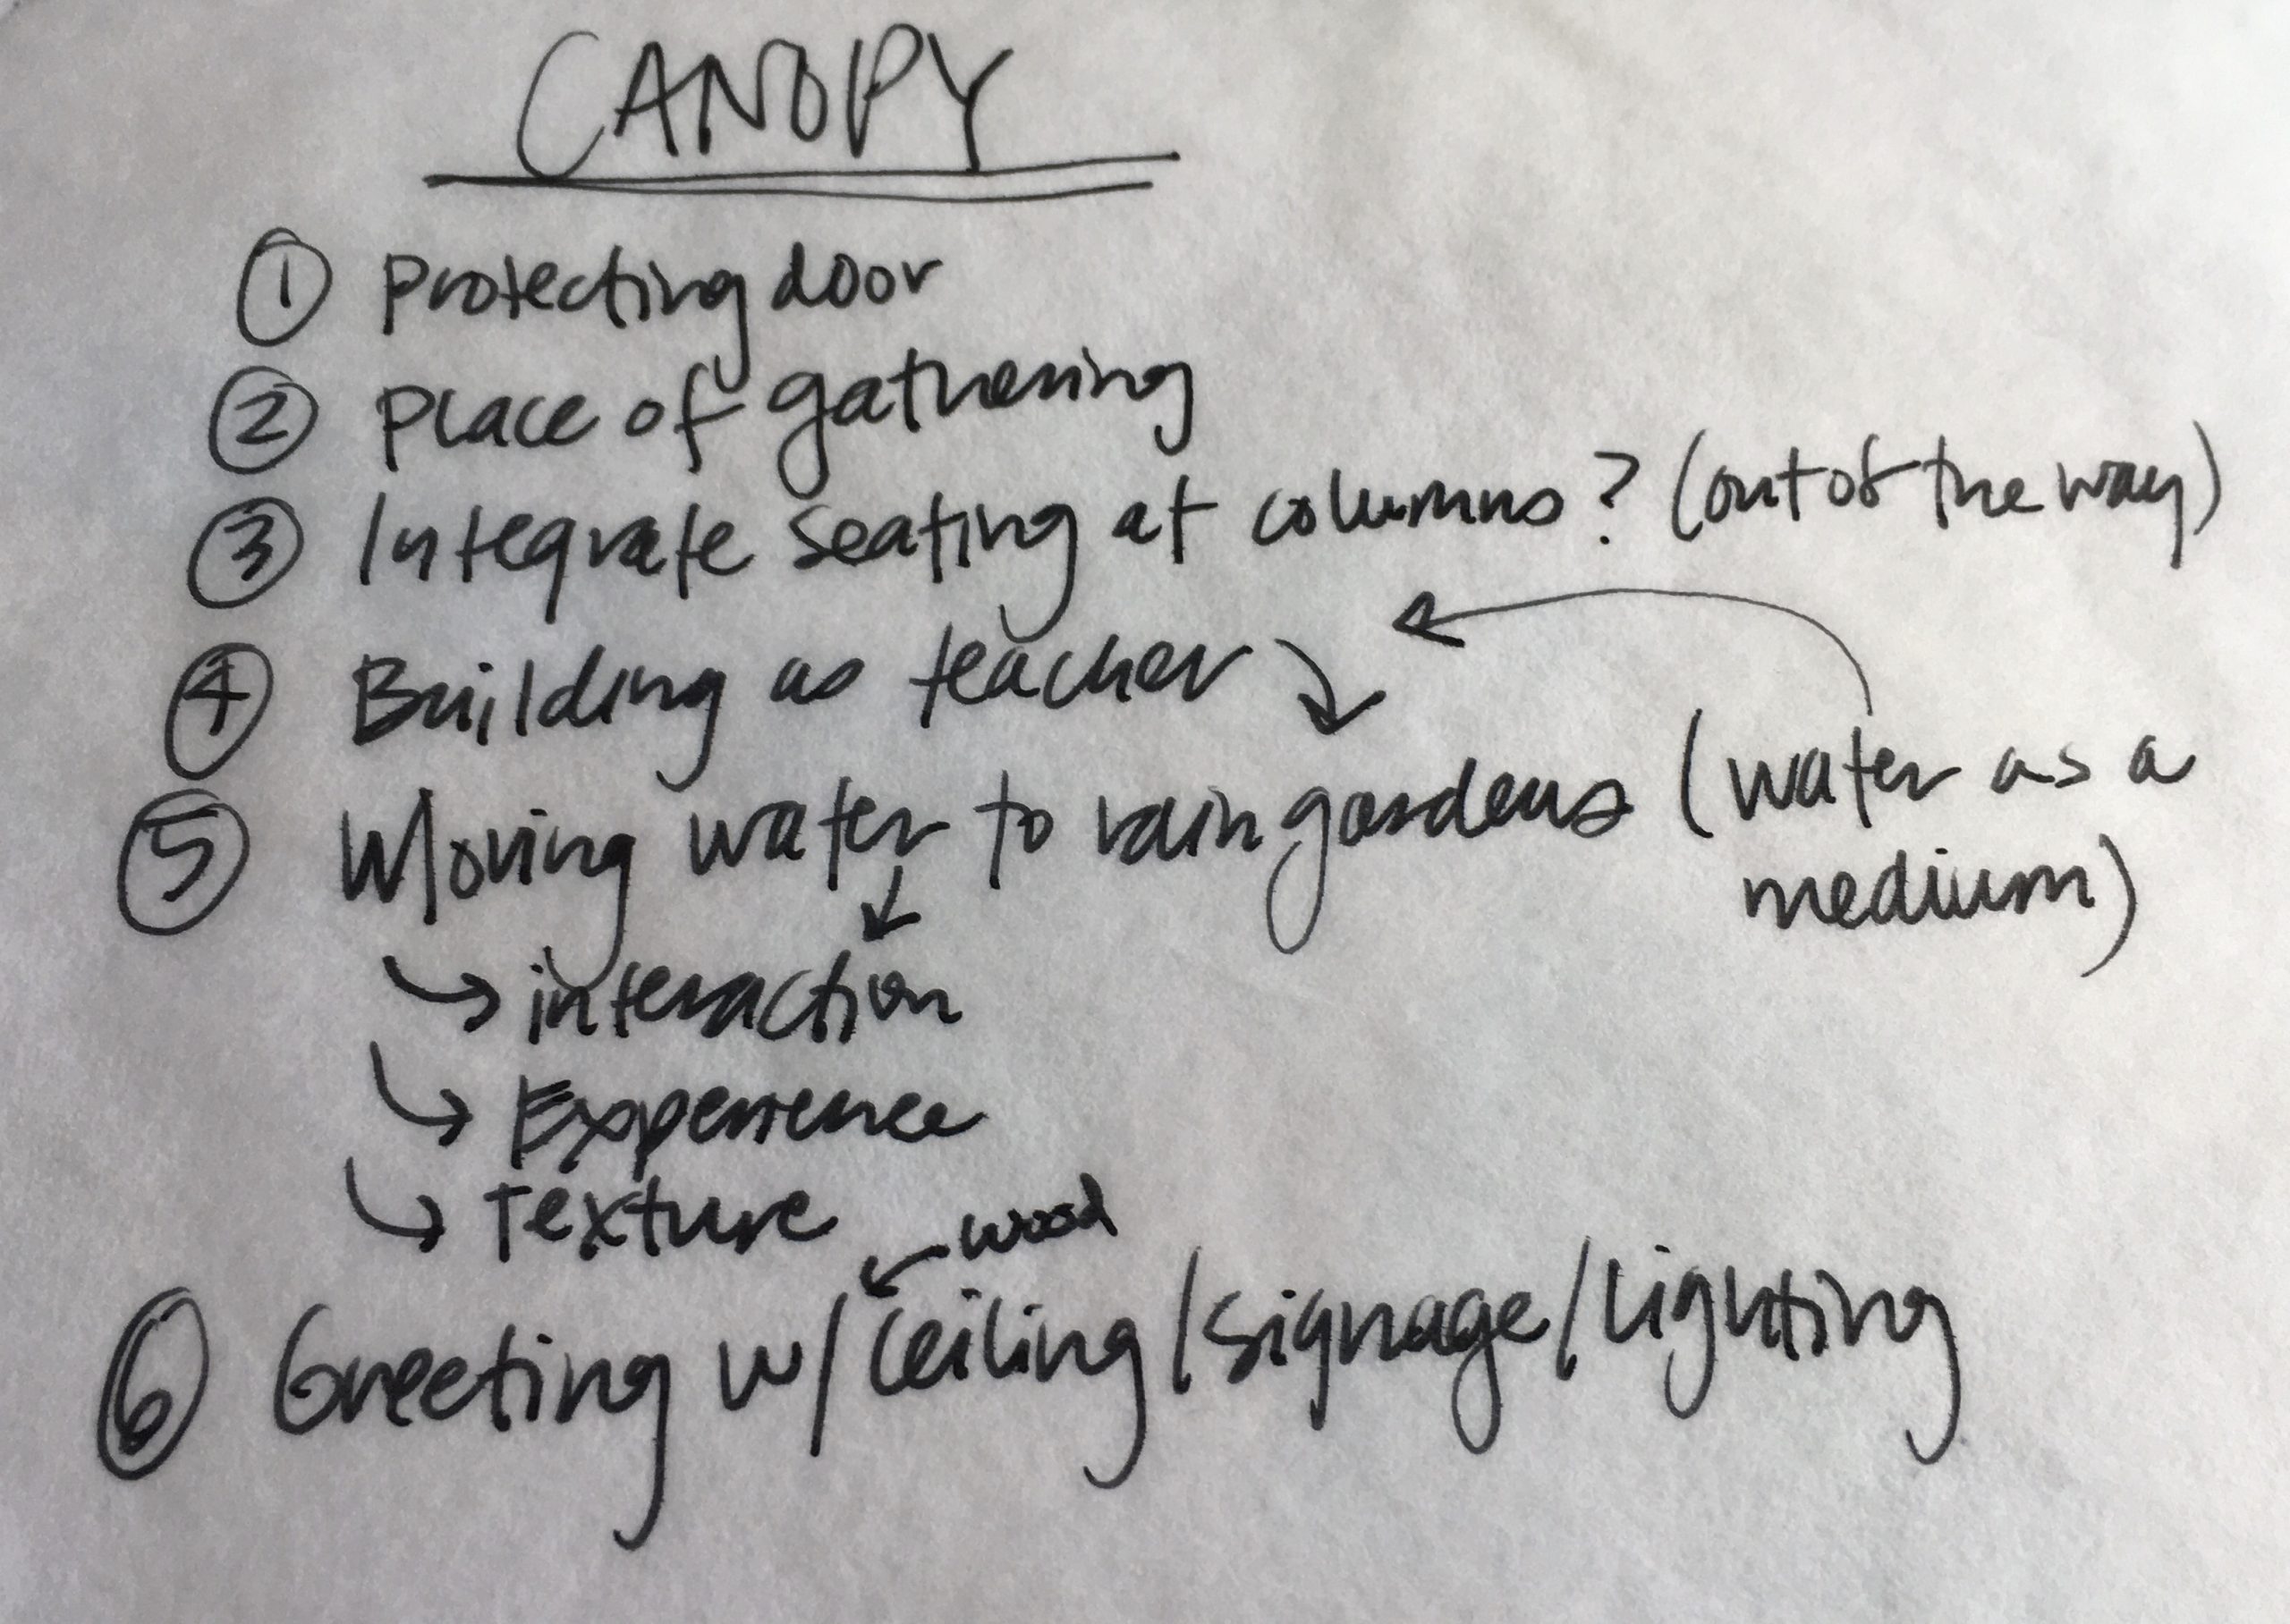 CANOPY
1 Protecting door
2 Place of gathering
3 Integrate seating at columns? (out of the way)
4 Building as teacher
5 Moving water to rain gardens (water as a
medium)
→ interaction
→ Experience
→ Texture
← wood
6 Greeting w/ ceiling/signage/lighting